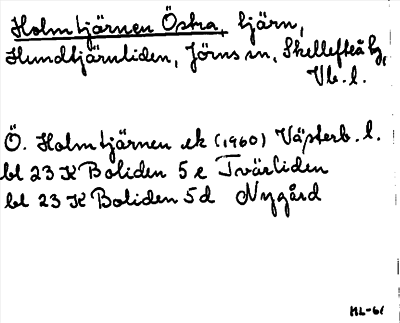 Holmtjärnen Östra, tjärn,
Hundtjärnliden, Jörns sn, Skellefteå kg,
Vb. l.
Ö. Holmtjärnen ek (1960) Västerb. l.
bl 23 K Boliden 5 e Tvärliden
bl 23 K Boliden 5 d Nygård
ML-61